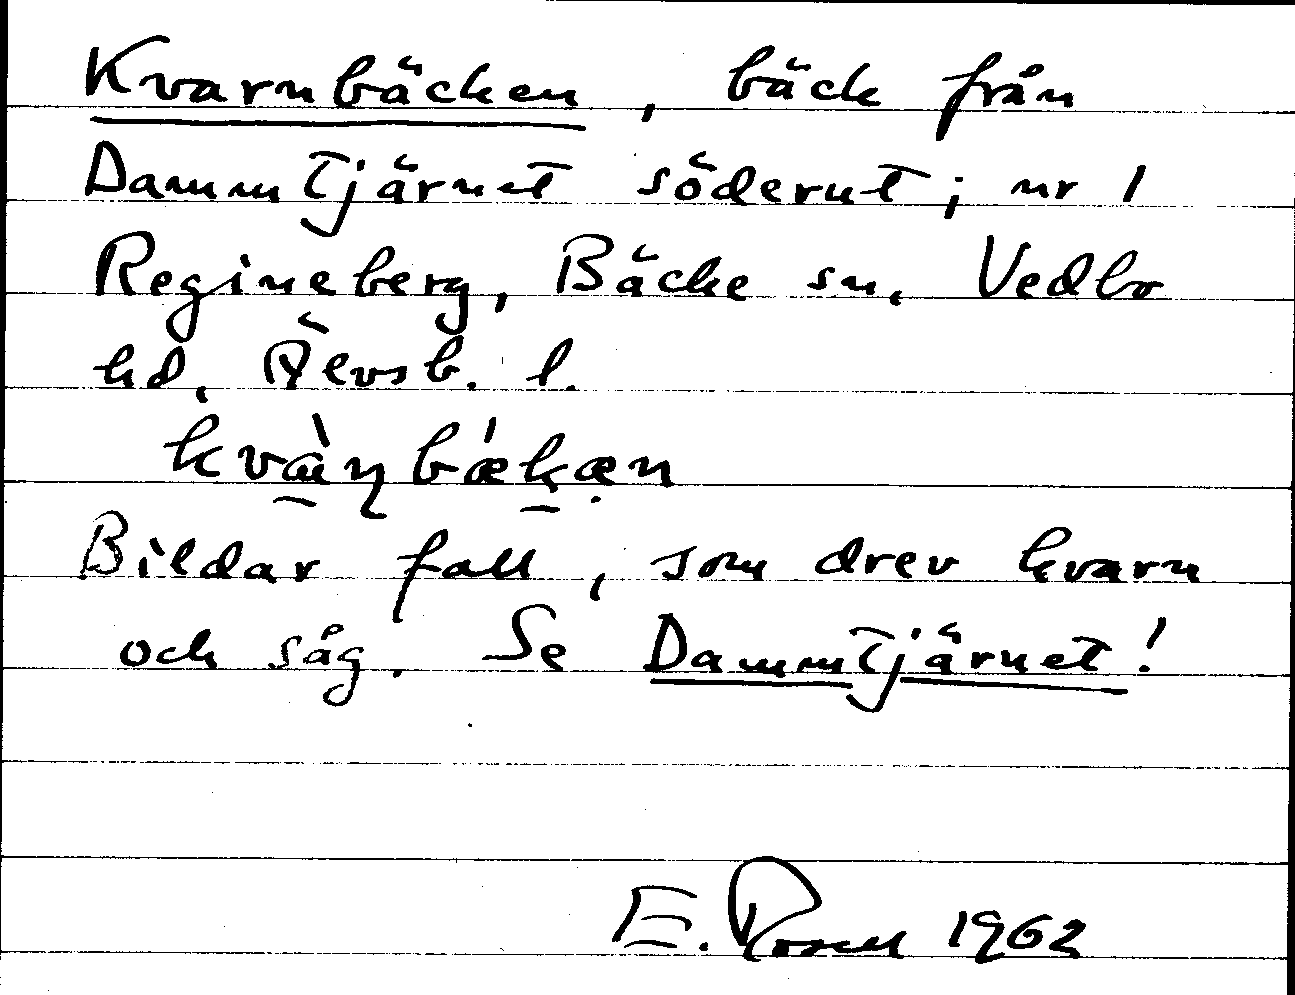 Kvarnbäcken, bäck från
Dammtjärnet söderut; nr 1
Regineberg, Bäcke sn. Vedbo
hd, Älvsb. l.
kvàɳbǽkæn
Bildar fall, som drev kvarn
och såg. Se Dammtjärnet!
E. Rosell 1962